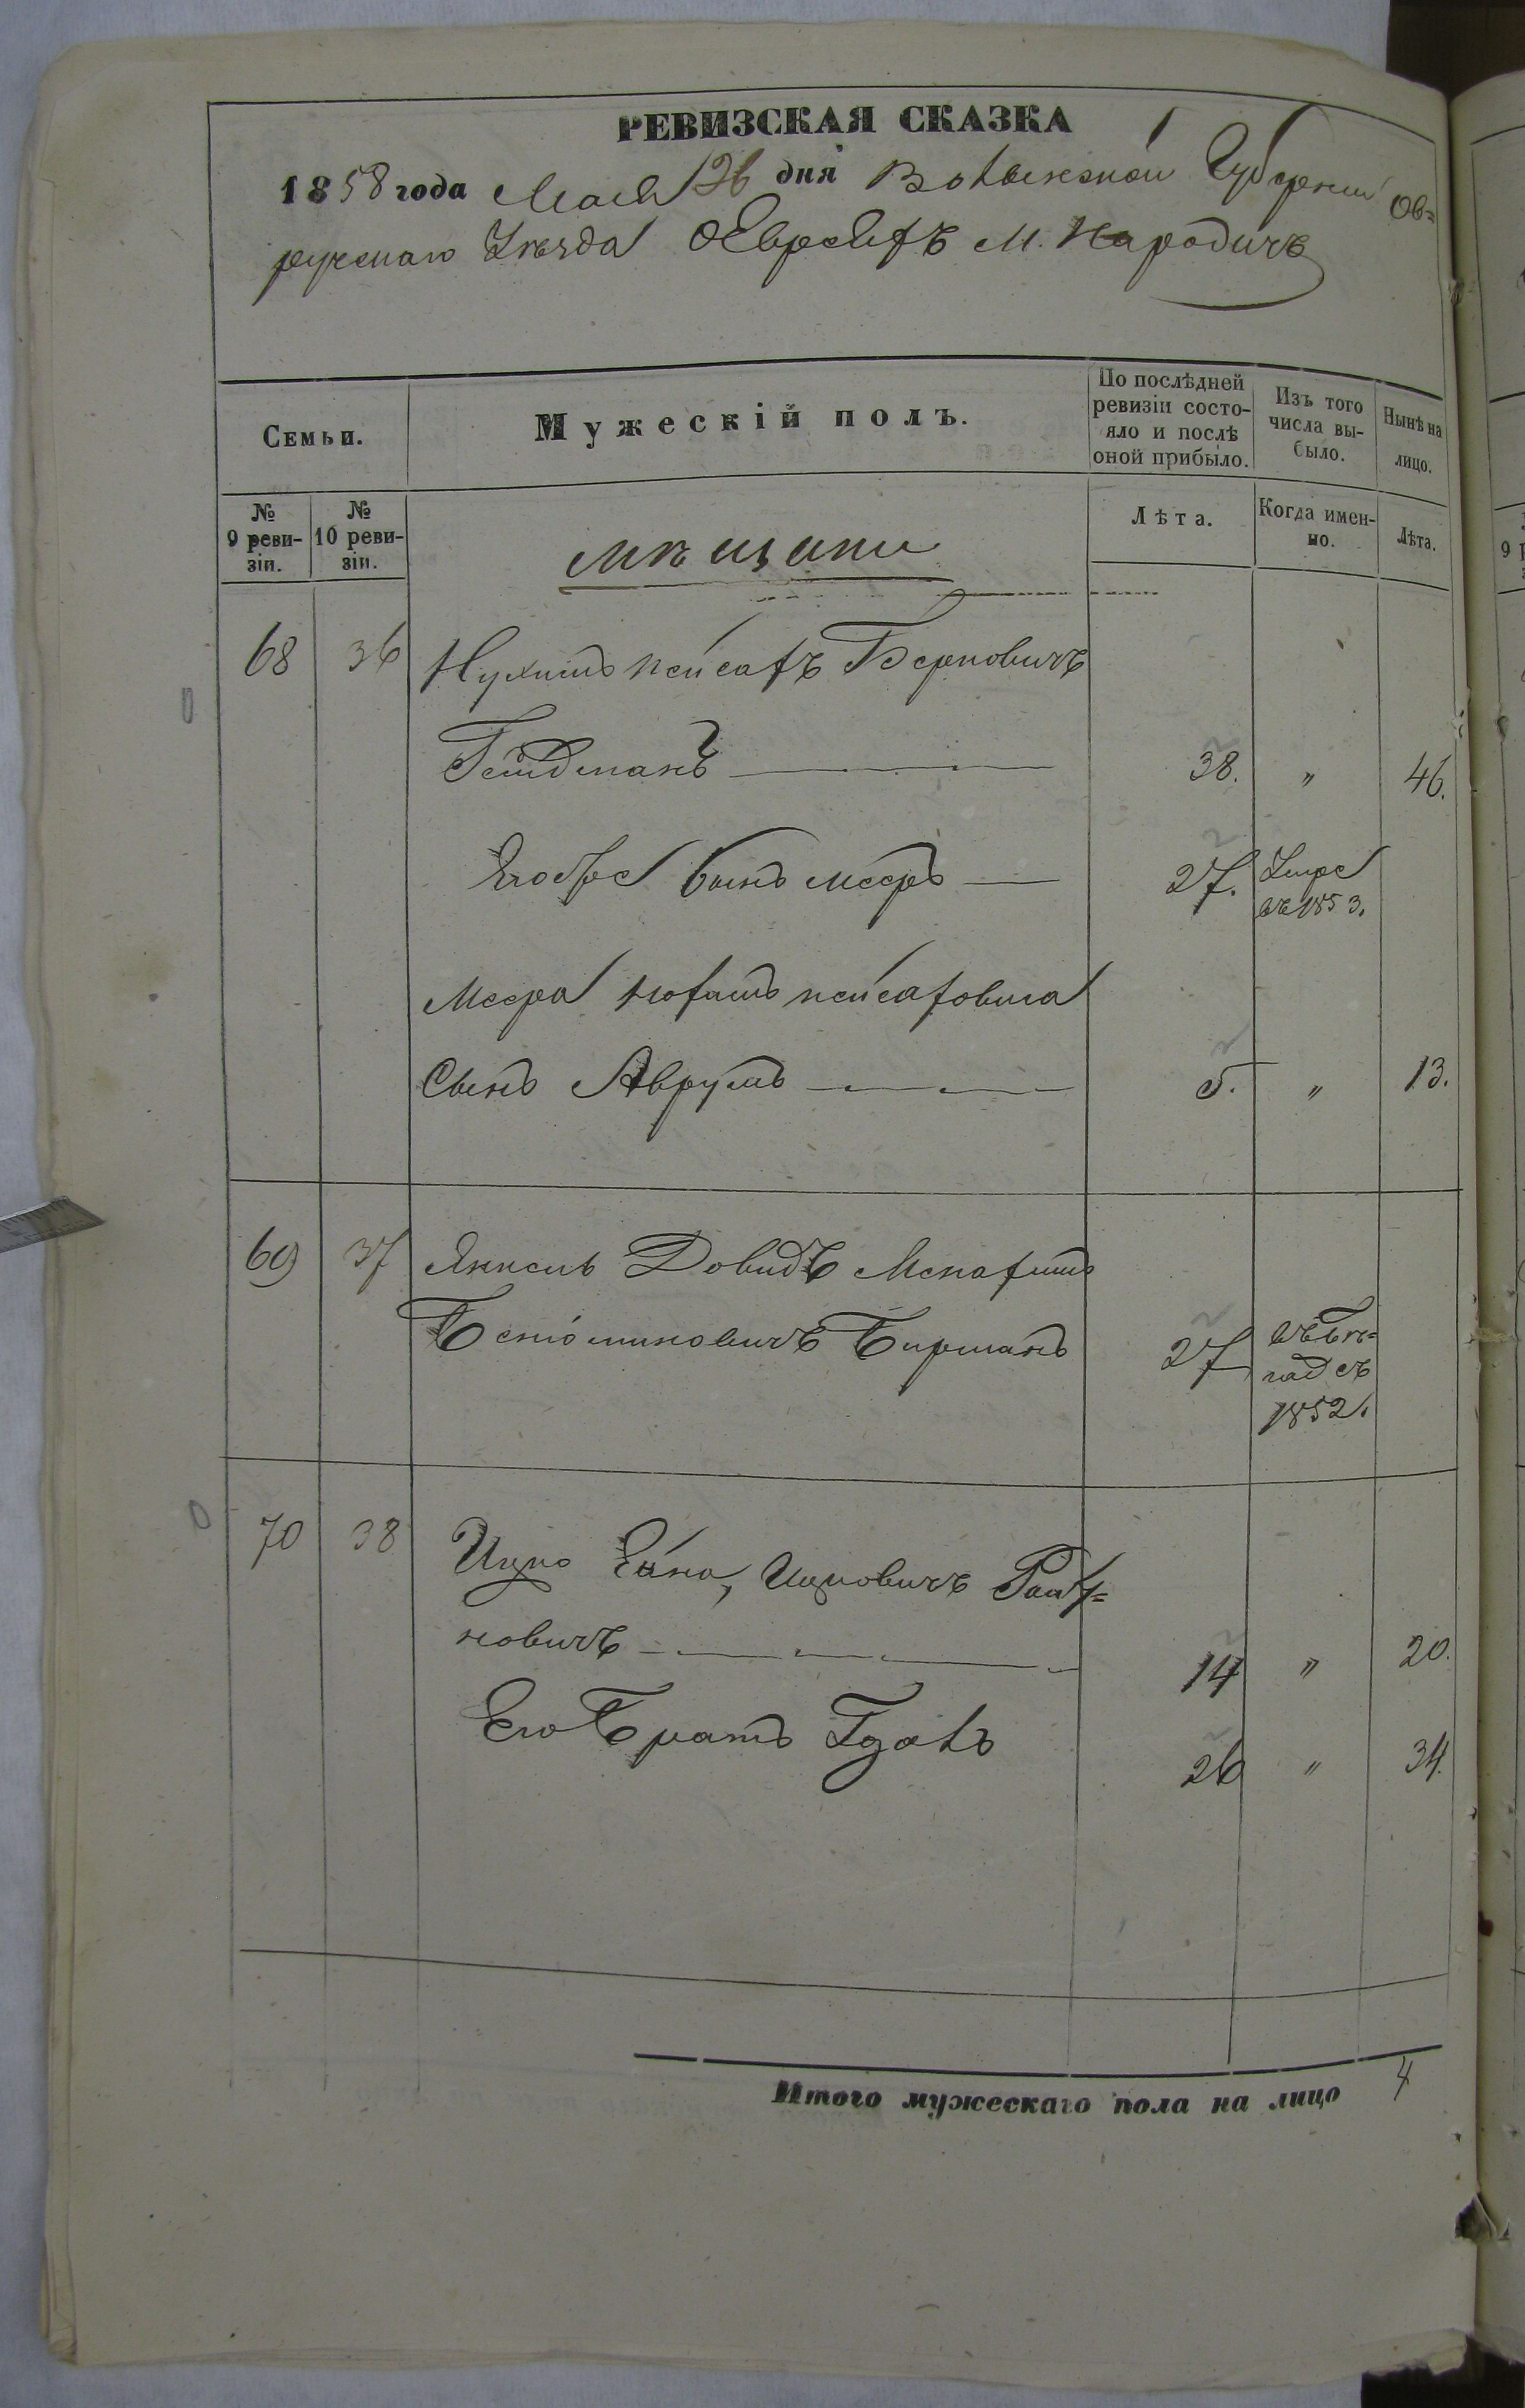 РЕВИЗСКАЯ СКАЗКА
1858 года Мая 26 дня Волынской Губернии Ов=
ручскаго Уѣзда о Евреяхъ М. Народичъ
Семьи.
Мужескій полъ.
По послѣдней
ревизіи состо-
яло и послѣ
оной прибыло.
Изъ того
числа вы-
было.
Нынѣ на
лицо.
№
9 реви-
зіи.
№
10 реви-
зіи.
Лѣта.
Когда имен-
но.
Лѣта.
мѣщане
68 36 Нухимъ Пейсахъ Берковичъ
38. " 46.
сынъ Мееръ 27. Умре
въ 1853.
Меера Пейсаховича
Сынъ Аврумъ 5. " 13.
69 37 Янкель Довидъ
Беніоминовичъ Бирманъ 27 въ бѣ=
гах съ
1852.
70 38 Ицко Ицковичъ
новичъ 14 " 20.
Его Братъ 26 " 34.
Итого мужескаго пола на лицо 4